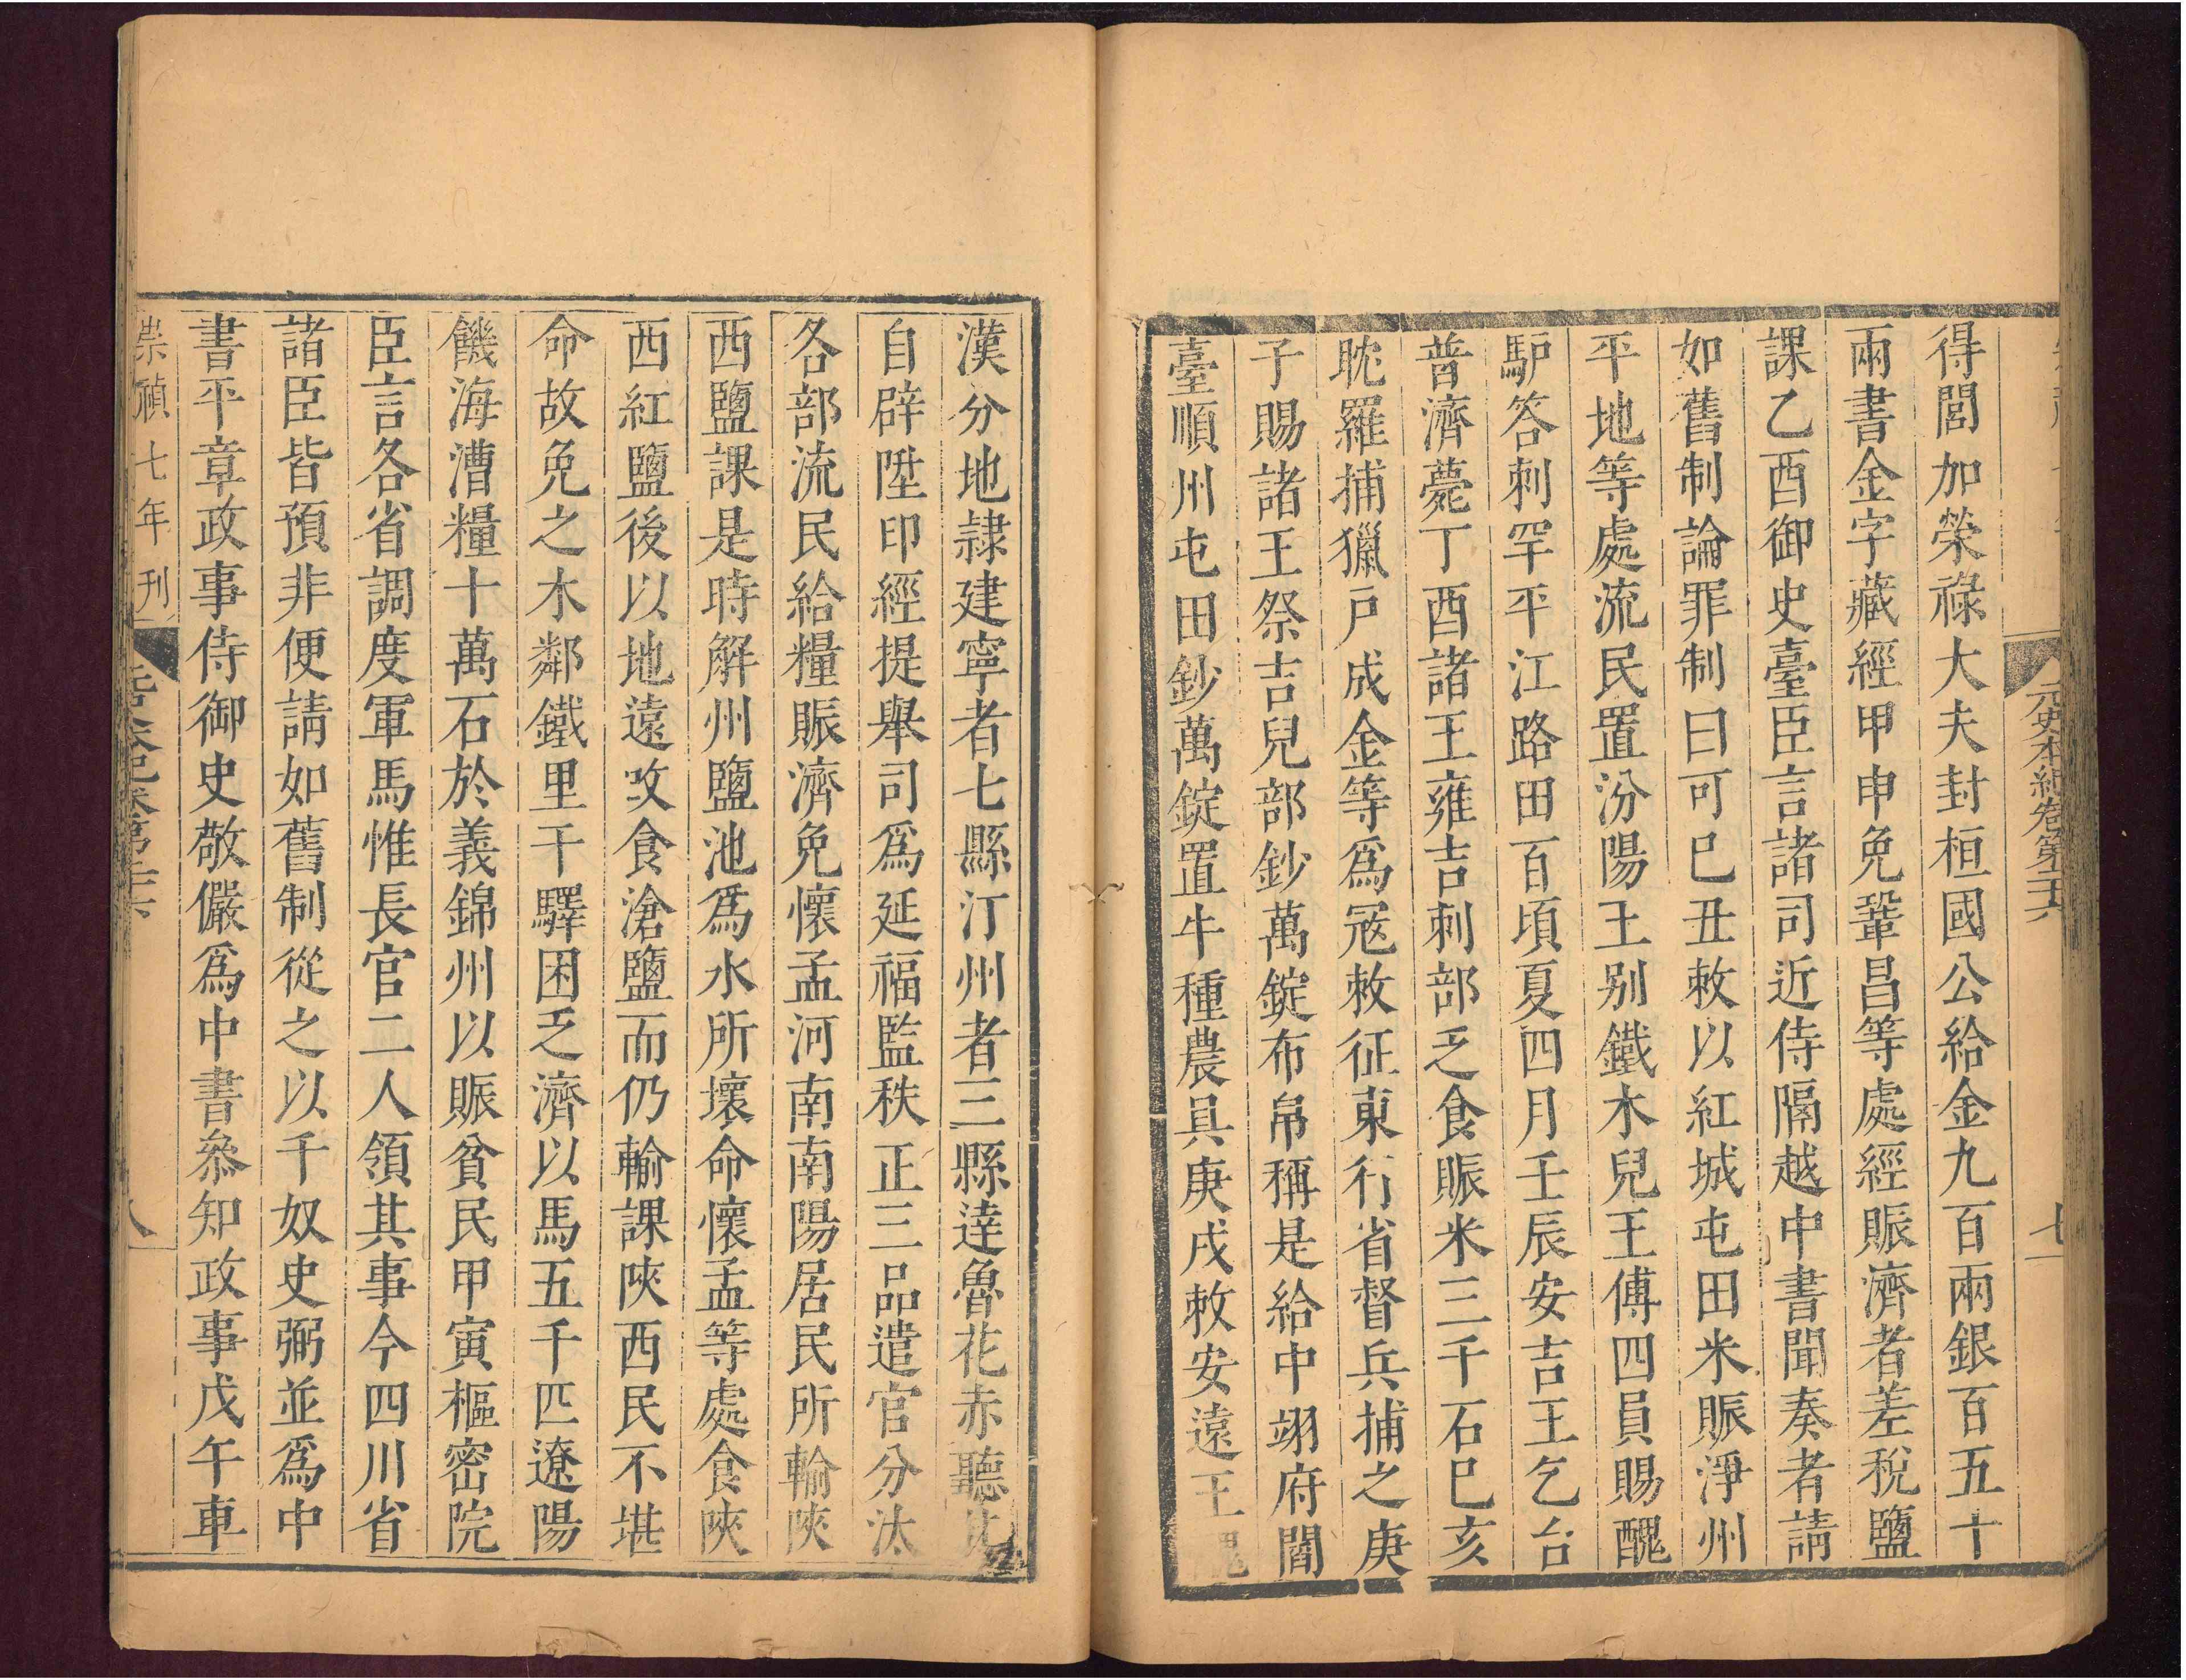 元史本紀卷第二十六
七
得閭加榮祿大夫封桓國公給金九百兩銀百五十
兩書金字藏經甲申免鞏昌等處經賑濟者差稅鹽
課乙酉御史臺臣言諸司近侍隔越中書聞奏者請
如舊制論罪制曰可巳丑敕以紅城屯田米賑淨州
平地等處流民置汾陽王别鐵木兒王傅四員賜醜
馿答刺罕平江路田百頃夏四月壬辰安吉王乞台
普濟薨丁酉諸王雍吉刺部乏食賑米三千石巳亥
眈羅捕獵戸成金等爲冦敕征東行省督兵捕之庚
子賜諸王祭吉兒部鈔萬錠布帛稱是給中翊府閻
臺順州屯田鈔萬錠置牛種農具庚戌敕安遠王
漢分地隷建寧者七縣汀州者三縣達魯花赤聽其
自辟陞印經提舉司爲延福監秩正三品遣官分汰
各部流民給糧賑濟免懷孟河南南陽居民所輸陝
西鹽課是時解州鹽池爲水所壞命懷孟等處食陝
西紅鹽後以地遠攻食滄鹽而仍輸課陝西民不堪
命故免之木鄰鐵里干驛困乏濟以馬五千匹遼陽
饑海漕糧十萬石於義錦州以賑貧民甲寅樞密院
臣言各省調度軍馬惟長官二人領其事今四川省
諸臣皆預非便請如舊制從之以千奴史弼並爲中
書平章政事侍御史敬儼爲中書叅知政事戊午車
崇禎七年刊
八